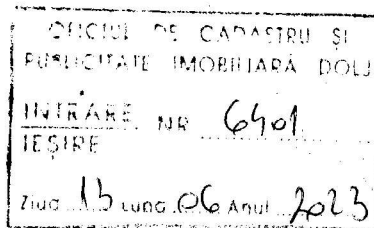 OFICIUL DE CADASTRU ŞI
PUBLICITATE IMOBILIARĂ DOLJ
INTRARE NR 6401
IEŞIRE
Ziua 13 Luna 06 Anul 2023